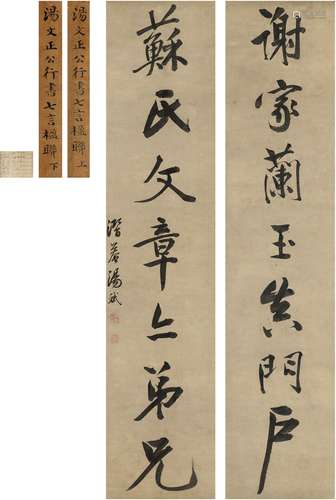 謝家蘭玉真門戶
蘇氏文章亦弟兄
潛菴湯斌
湯文正公行書七言楹聯 上
湯文正公行書七言楹聯 下